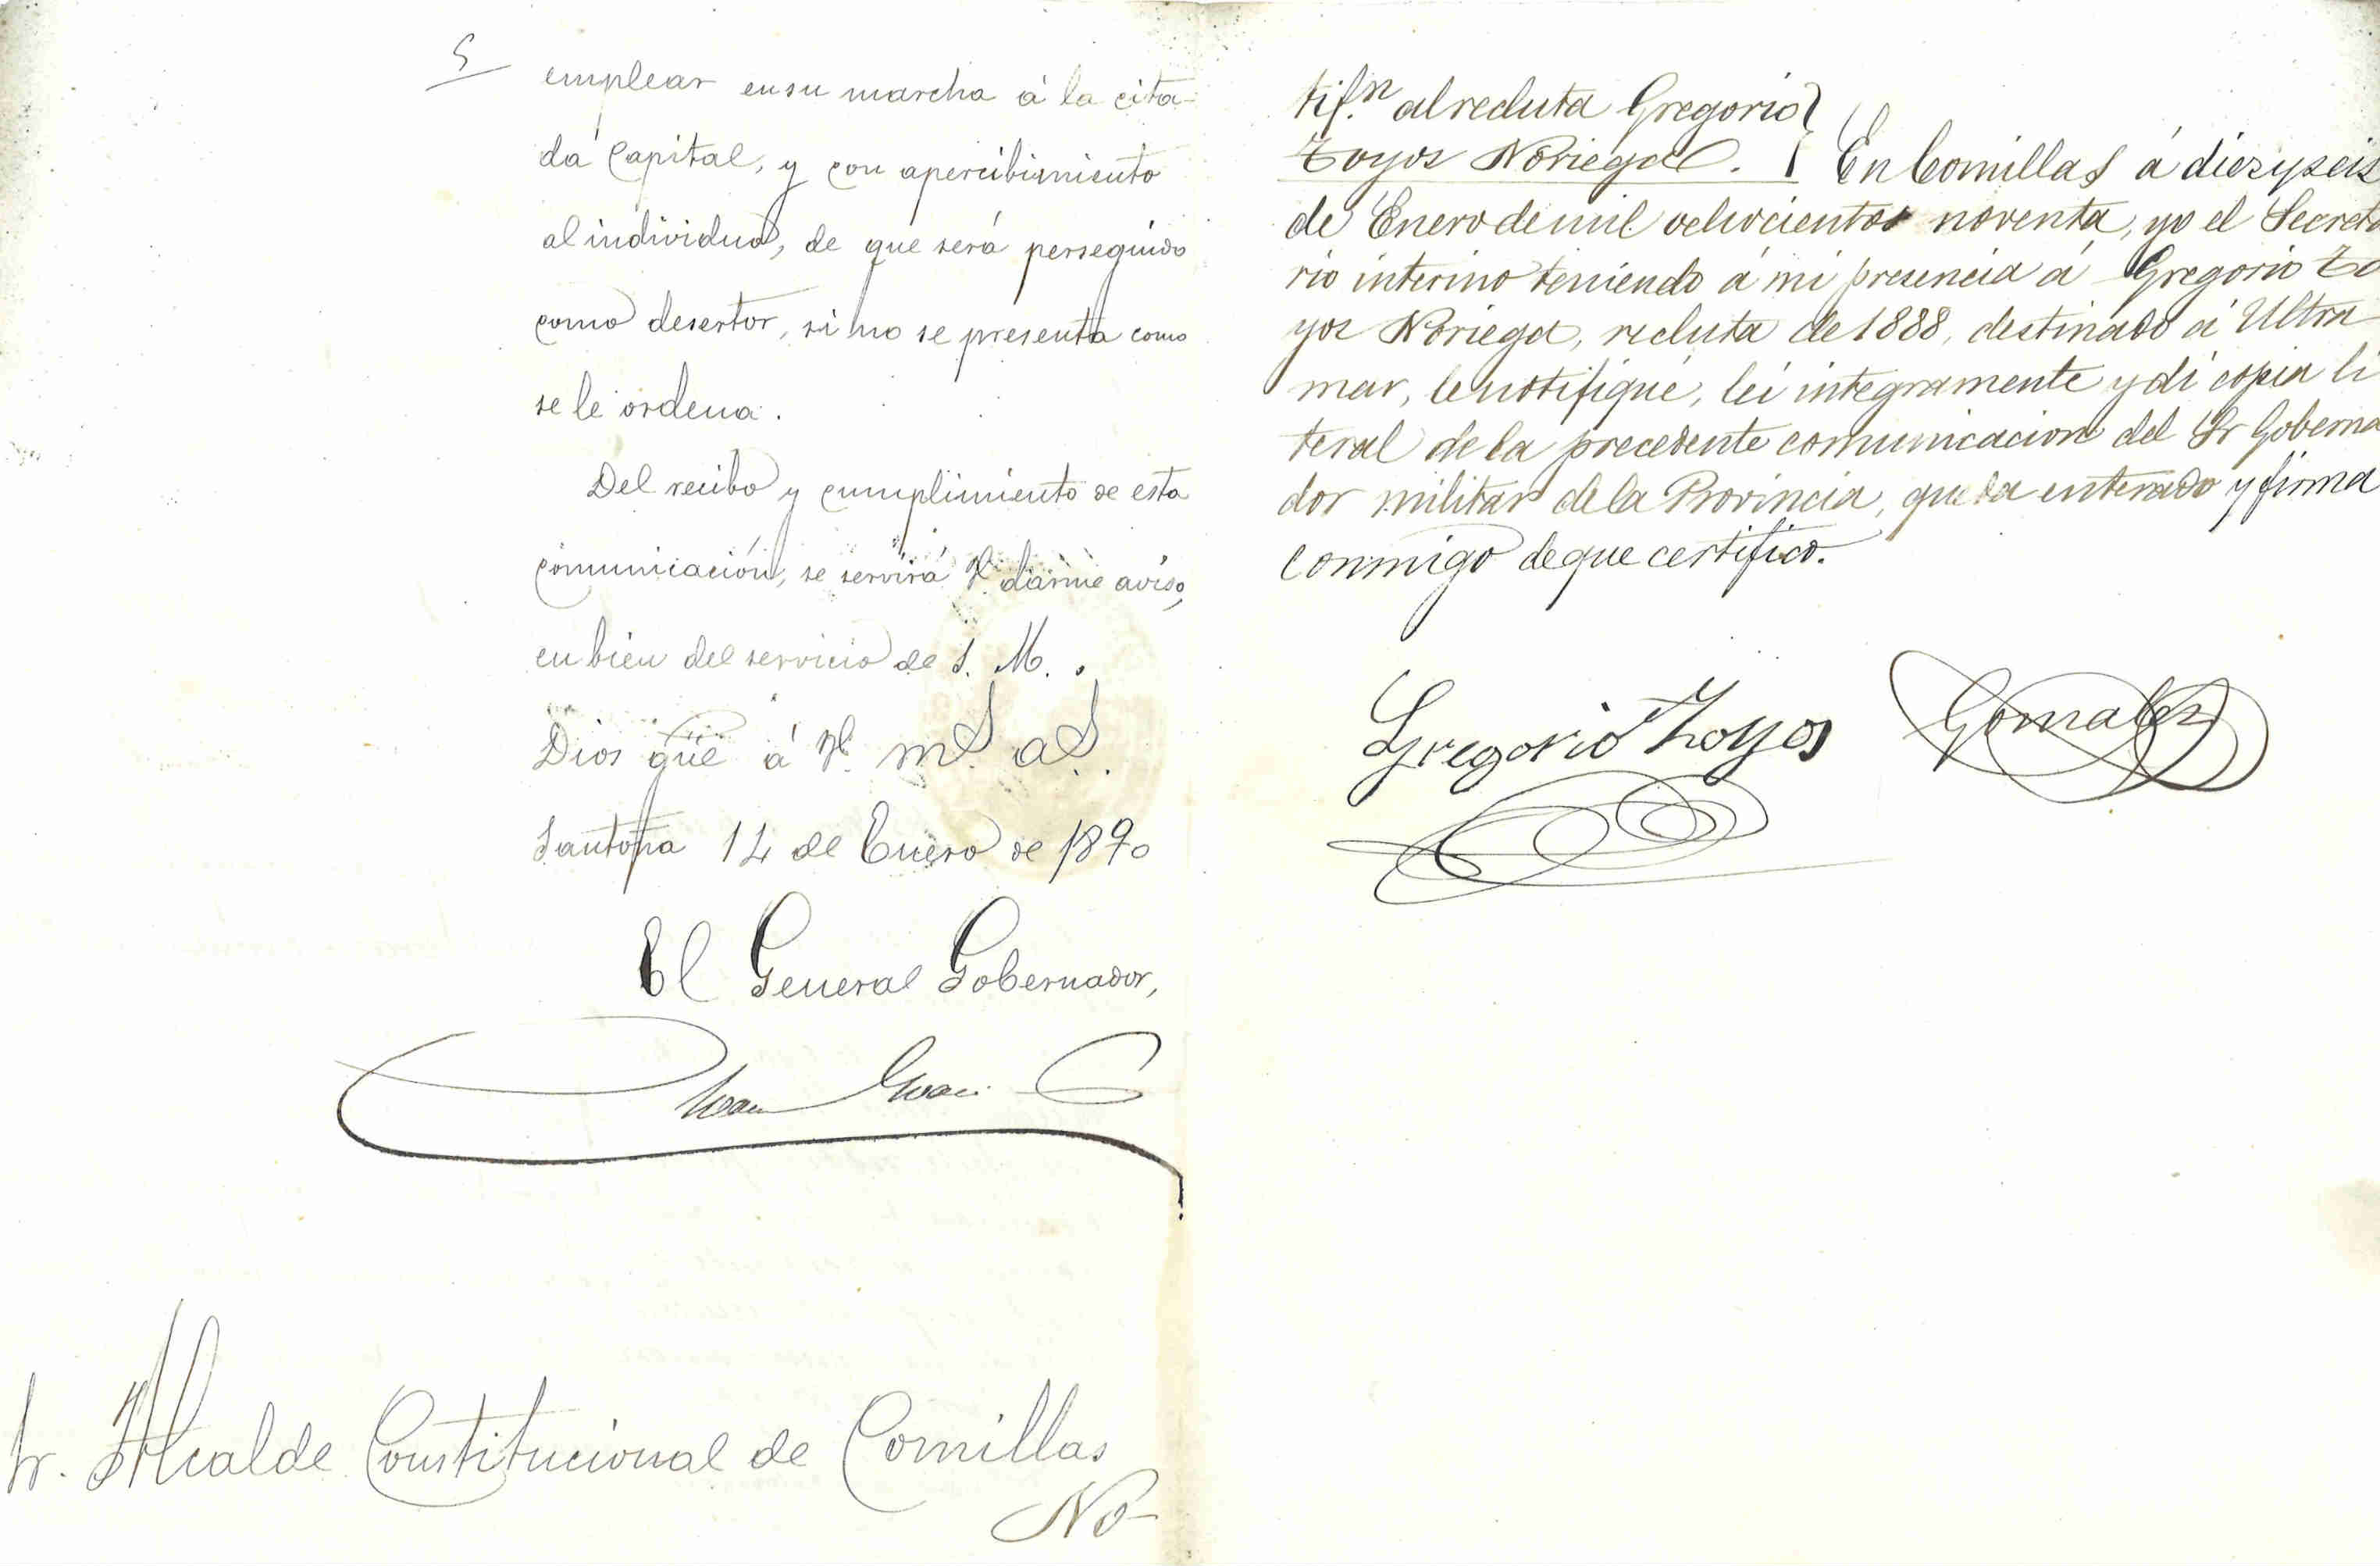 5
emplear en su marcha á la cita-
da Capital, y con apercibimiento
al individuo, de que será perseguido
como desertor, si no se presenta como
se le ordena.
Del recibo y cumplimiento de esta
comunicación, se servirá V. darme aviso,
en bien del servicio de S. M.
Dios gue á V. ms. as.
Santoña 14 de Enero de 1890
El General Gobernador,
Sr. Alcalde Constitucional de Comillas
No-
tif.n al recluta Gregorio
Toyos Noriega. En Comillas á diez y seis
de Enero de mil ochocientos noventa, yo el Secreta
rio interino teniendo á mi presencia á Gregorio To
yos Noriega, recluta de 1888, destinado á Ultra
mar, le notifiqué, leí integramente y dí copia li
teral de la precedente comunicacion del Sr Goberna
dor militar de la Provincia, queda enterado y firma
conmigo de que certifico.
Gregorio Toyos Gonzalez